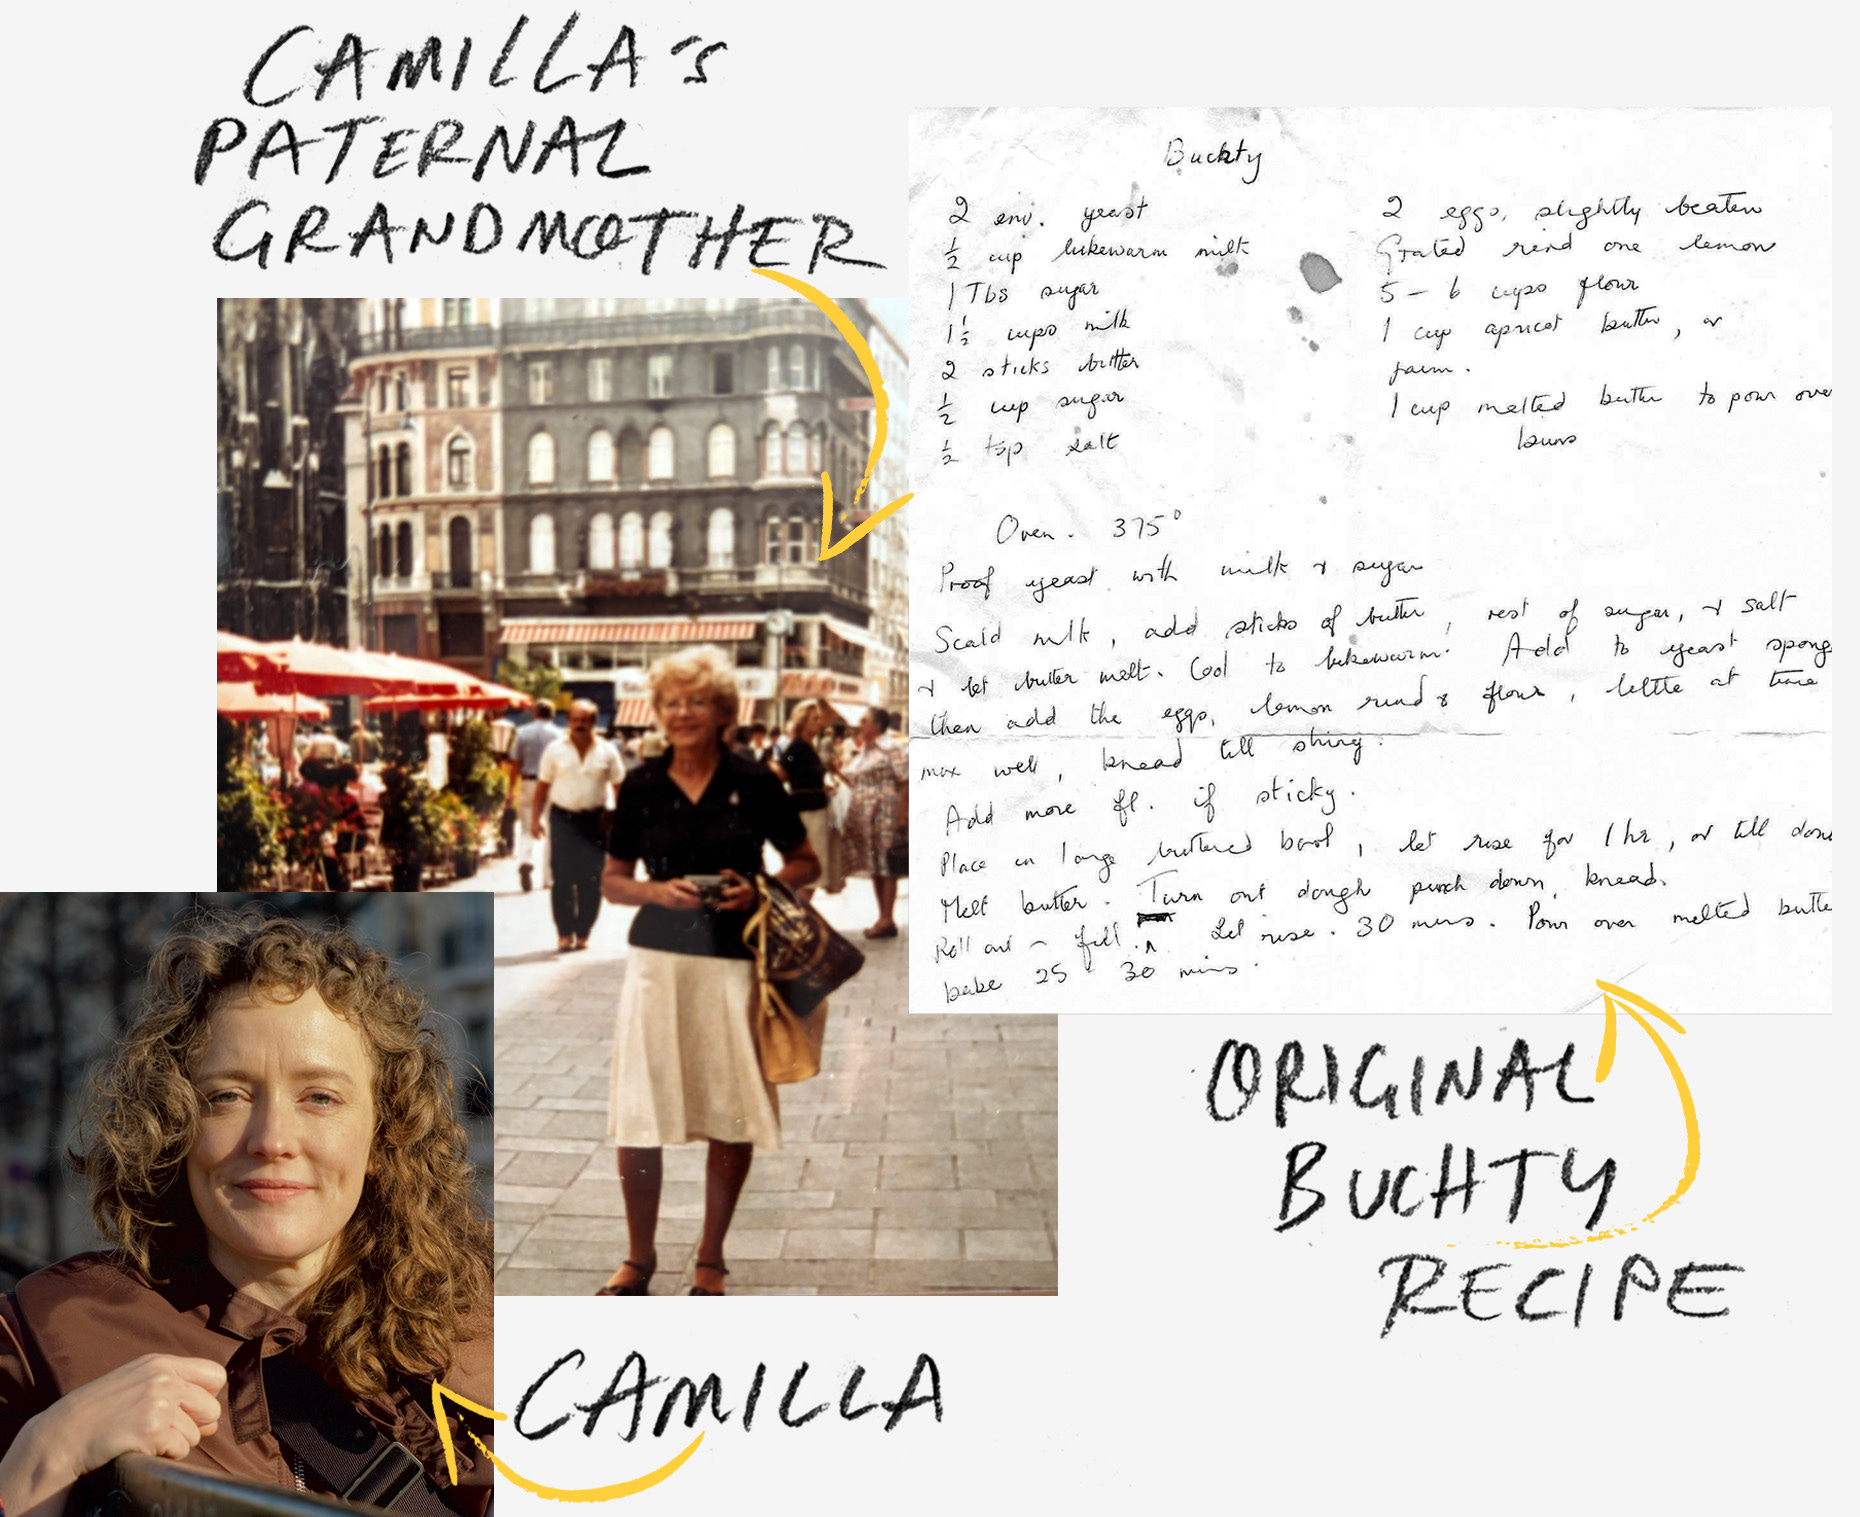 CAMILLA's
PATERNAL
GRANDMOTHER
Buchty
2 env. yeast
½ cup lukewarm milk
1 Tbs sugar
1½ cups milk
2 sticks butter
½ cup sugar
½ tsp salt
2 eggs, slightly beaten
Grated rind one lemon
5 - 6 cups flour
1 cup apricot butter, or
jam.
1 cup melted butter to pour over
buns
Oven. 375°
Proof yeast with milk & sugar
Scald milk, add sticks of butter, rest of sugar, & salt
& let butter melt. Cool to lukewarm. Add to yeast spong
then add the eggs, lemon rind & flour, little at time
mix well, knead till shiny.
Add more fl. if sticky.
Place in large buttered bowl, let rise for 1 hr, or till done
Melt butter. Turn out dough punch down, knead.
Roll out - fill. Let rise. 30 mins. Pour over melted butte
bake 25 - 30 mins.
ORIGINAL
BUCHTY
RECIPE
CAMILLA